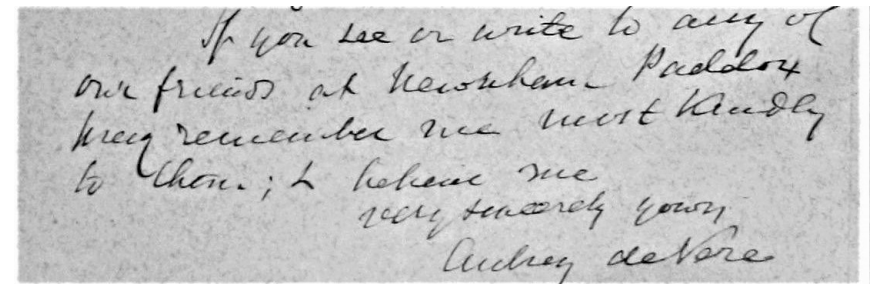 If you see or write to any of
our friends at Newnham Paddox
pray remember me most kindly
to them; & believe me
very sincerely yours
Aubrey de Vere